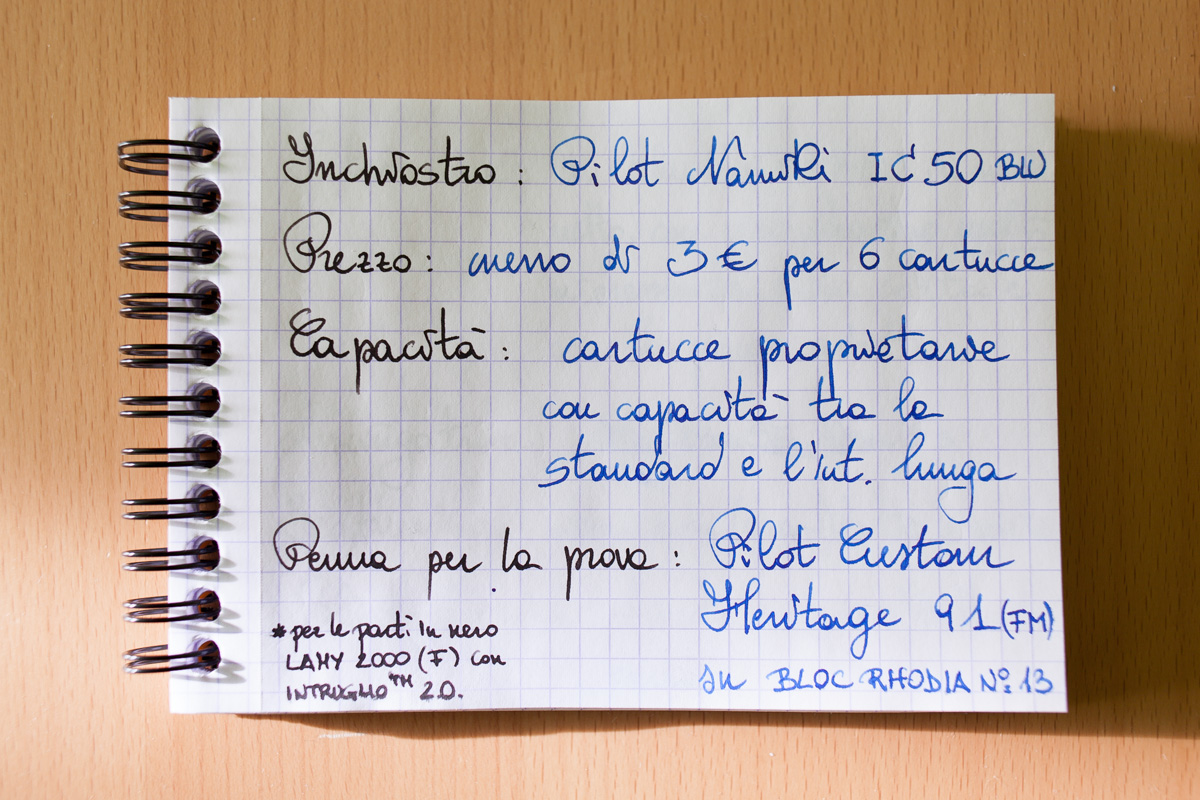 Inchiostro: Pilot Namiki IC 50 BLU
Prezzo: meno di 3 € per 6 cartucce
Capacità: cartucce proprietarie
con capacità tra la
standard e l'int. lunga
Penna per la prova: Pilot Custom
Heritage 91 (FM)
*per le parti in nero
LAMY 2000 (F) con
INTRUGLIO™ 2.0.
su BLOC RHODIA Nº 13